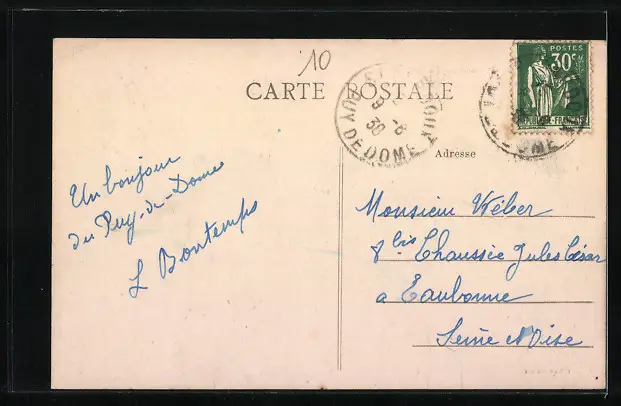 10
CARTE POSTALE
PUY DE DOME
POSTES
30c
Adresse
Un bonjour
du Puy-de-Dome
L Bontemps
Monsieur Wéber
8 bis Chaussée Jules César
a Eaubonne
Seine et Oise